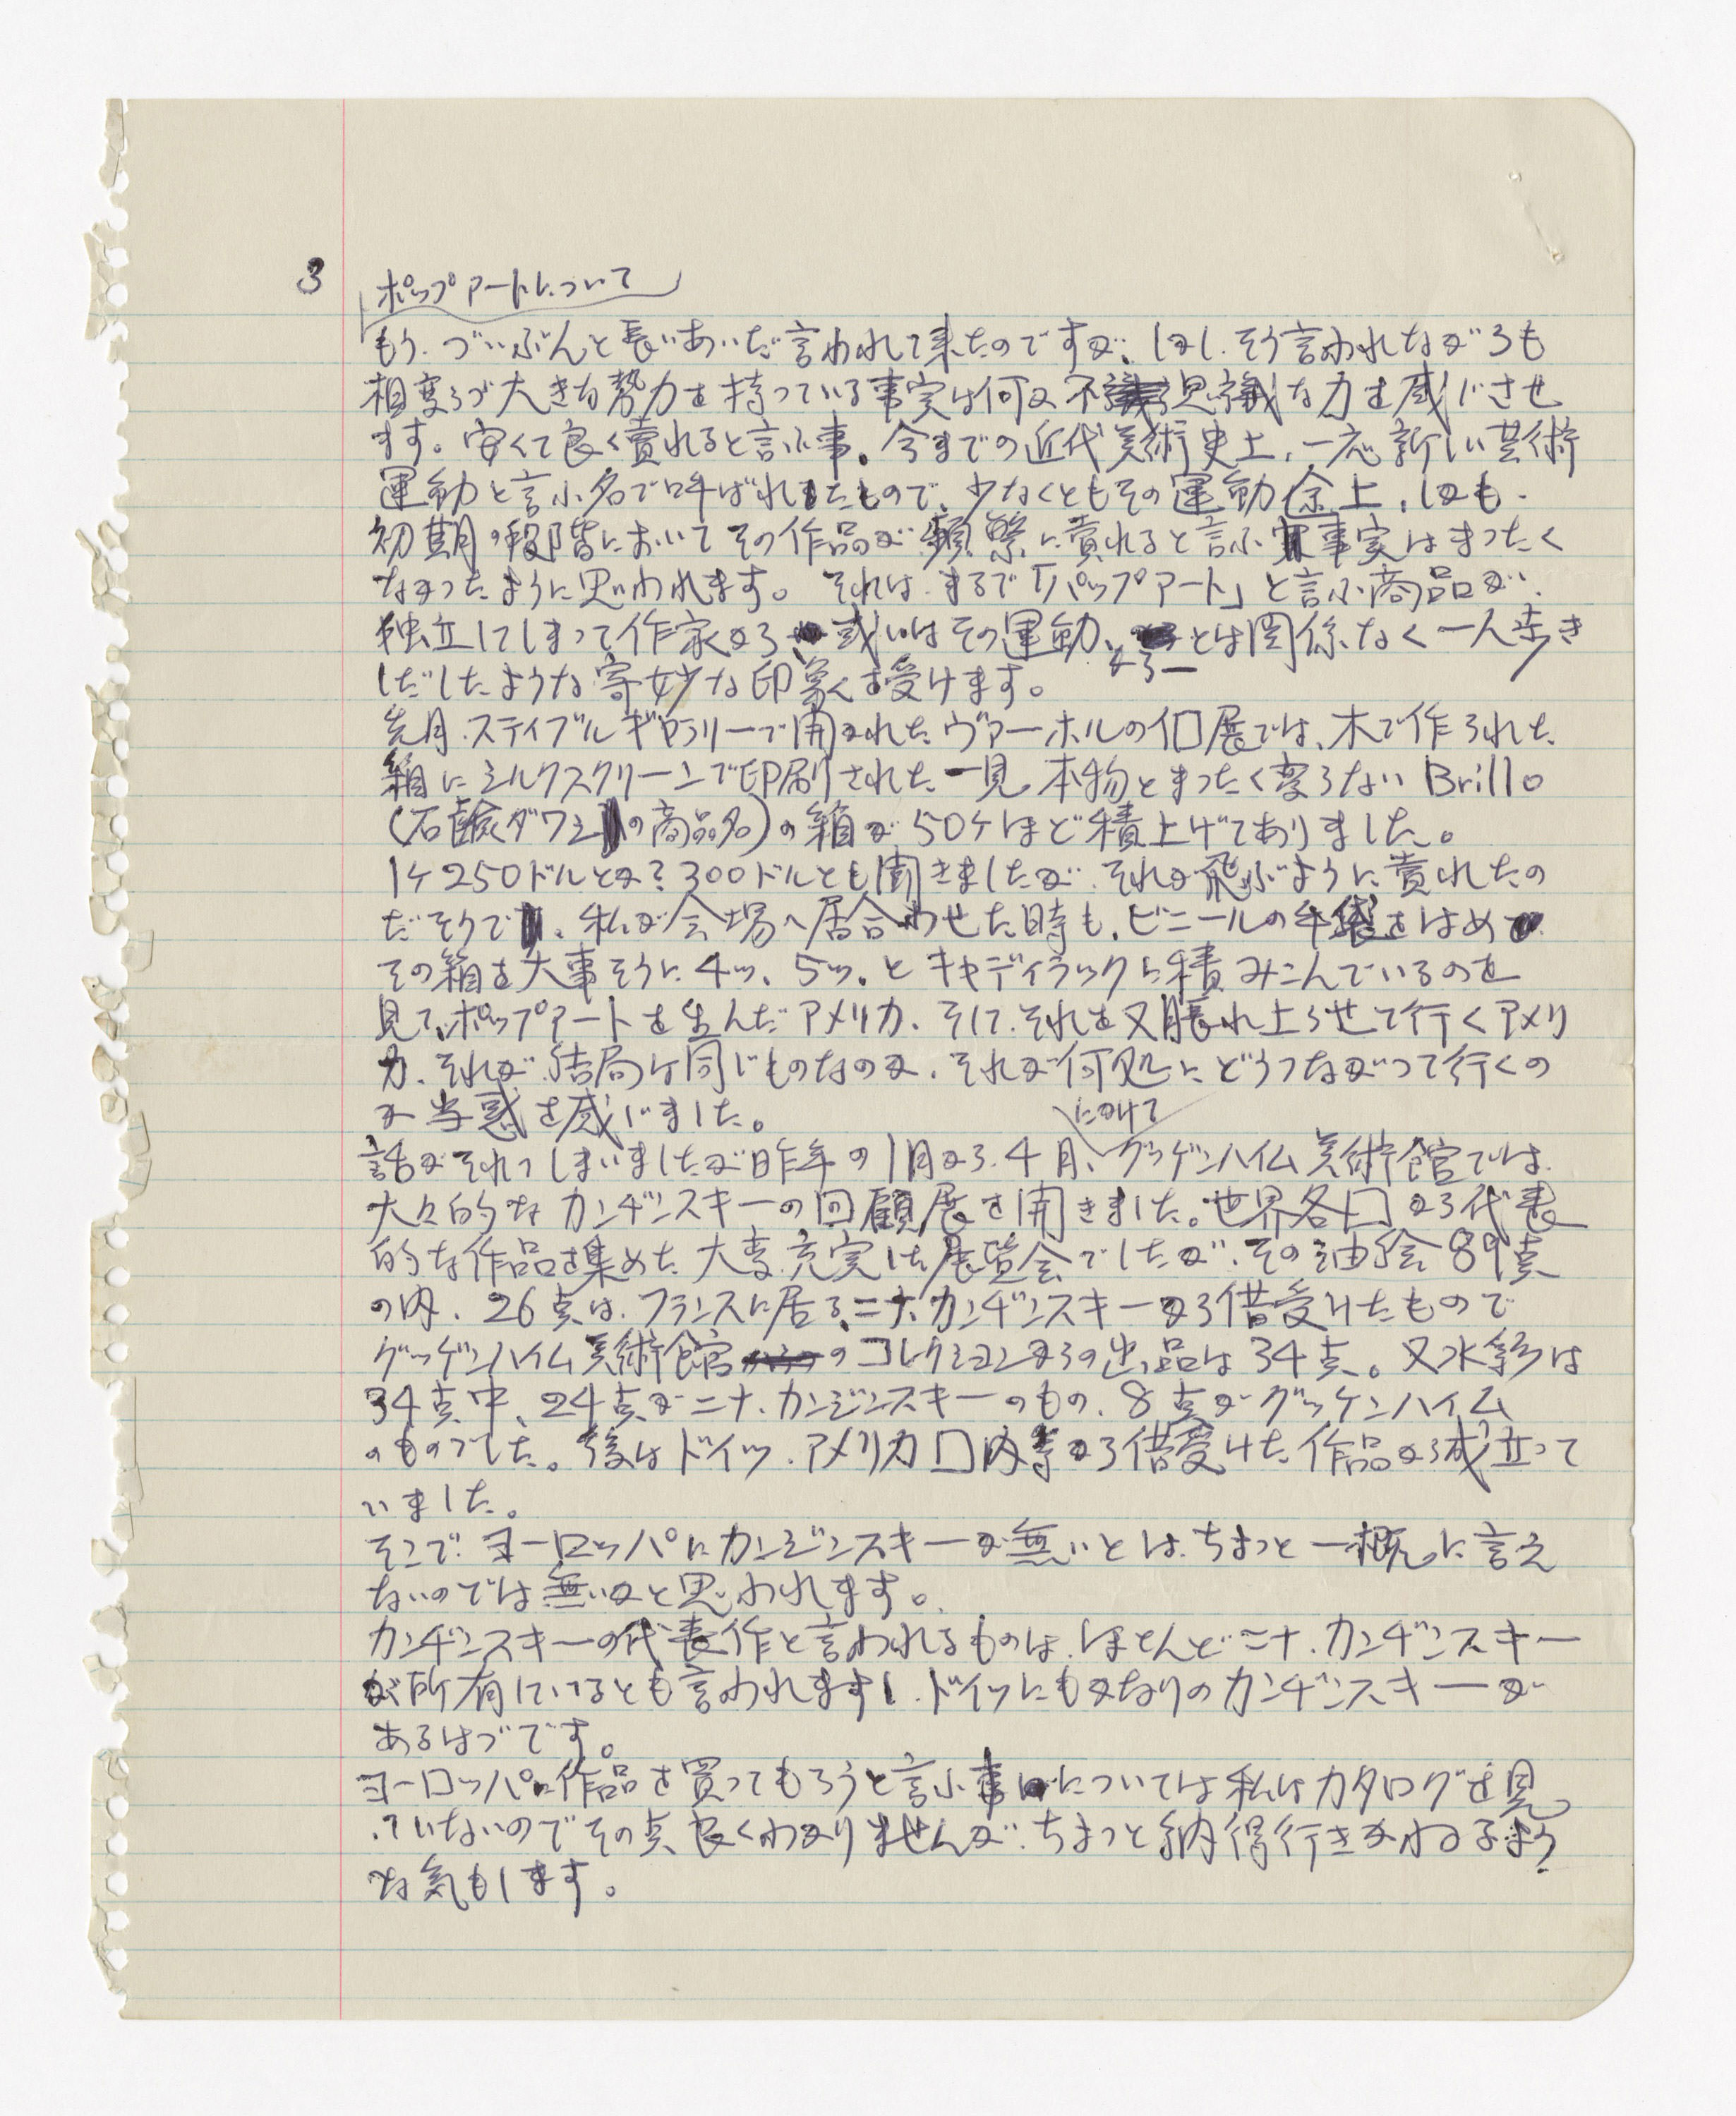 3 ポップアートについて
もう、づいぶんと長いあいだ言われて来たのですが、しかし、そう言われながらも
相変らづ大きな勢力を持っている事実は何か不思議な力を感じさせ
ます。安くて良く売れると言ふ事。今までの近代美術史上、一応新しい芸術
運動と言ふ名で呼ばれたもので、少なくともその運動途上、しかも、
初期の段階においてその作品が頻繁に売れると言ふ事実はまったく
なかったように思われます。それは、まるで「パップアート」と言ふ商品が、
独立してしまって作家から、或いはその運動、からとは関係なく一人歩き
しだしたような寄妙な印象を受けます。
先月、スティブルギャラリーで開かれたヴァーホルの個展では、木で作られた
箱にシルクスクリーンで印刷された一見本物とまったく変らないBrillo
(石鹸ダワシの商品名)の箱が50ケほど積上げてありました。
1ケ250ドルとか?300ドルとも聞きましたが、それが飛ぶように売れたの
だそうで、私が会場へ居合わせた時も、ビニールの手袋をはめ
その箱を大事そうに、4ツ、5ツ、とキャディラックに積みこんでいるのを
見て、ポップアートを生んだアメリカ、そして、それを又脹れ上らせて行くアメリ
カ、それが結局は同じものなのか、それが何処に、どうつながって行くの
か当惑を感じました。
にかけて
話がそれてしまいましたが昨年の1月から4月、グッゲンハイム美術館では、
大々的なカンヂンスキーの回顧展を開きました。世界各国から代表
的な作品を集めた大変充実した展覧会でしたが、その油絵89点
の内、26点は、フランスに居るニナ、カンヂンスキーから借受けたもので
グッゲンハイム美術館のコレクションからの出品は34点。又水彩は
34点中、24点がニナ、カンジンスキーのもの、8点がグッケンハイム
のものでした。後はドイツ、アメリカ国内等から借受けた作品から成立って
いました。
そこで、ヨーロッパにカンジンスキーが無いとは、ちょっと一概に言え
ないのでは無いかと思われます。
カンヂンスキーの代表作と言われるものは、ほとんどニナ、カンヂンスキー
が所有しているとも言われますし、ドイツにもかなりのカンヂンスキーが
あるはづです。
ヨーロッパに作品を買ってもらうと言ふ事については私はカタログを見
ていないのでその点良くわかりませんが、ちょっと納得行きかねるよう
な気もします。